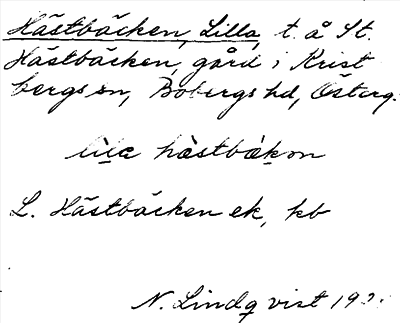 Hästbäcken, Lilla, t. å St.
Hästbäcken, gård i Krist
bergs sn, Bobergs hd, Österg.
lìla hàstbàkon
L. Hästbäcken ek, kb
N. Lindqvist 19